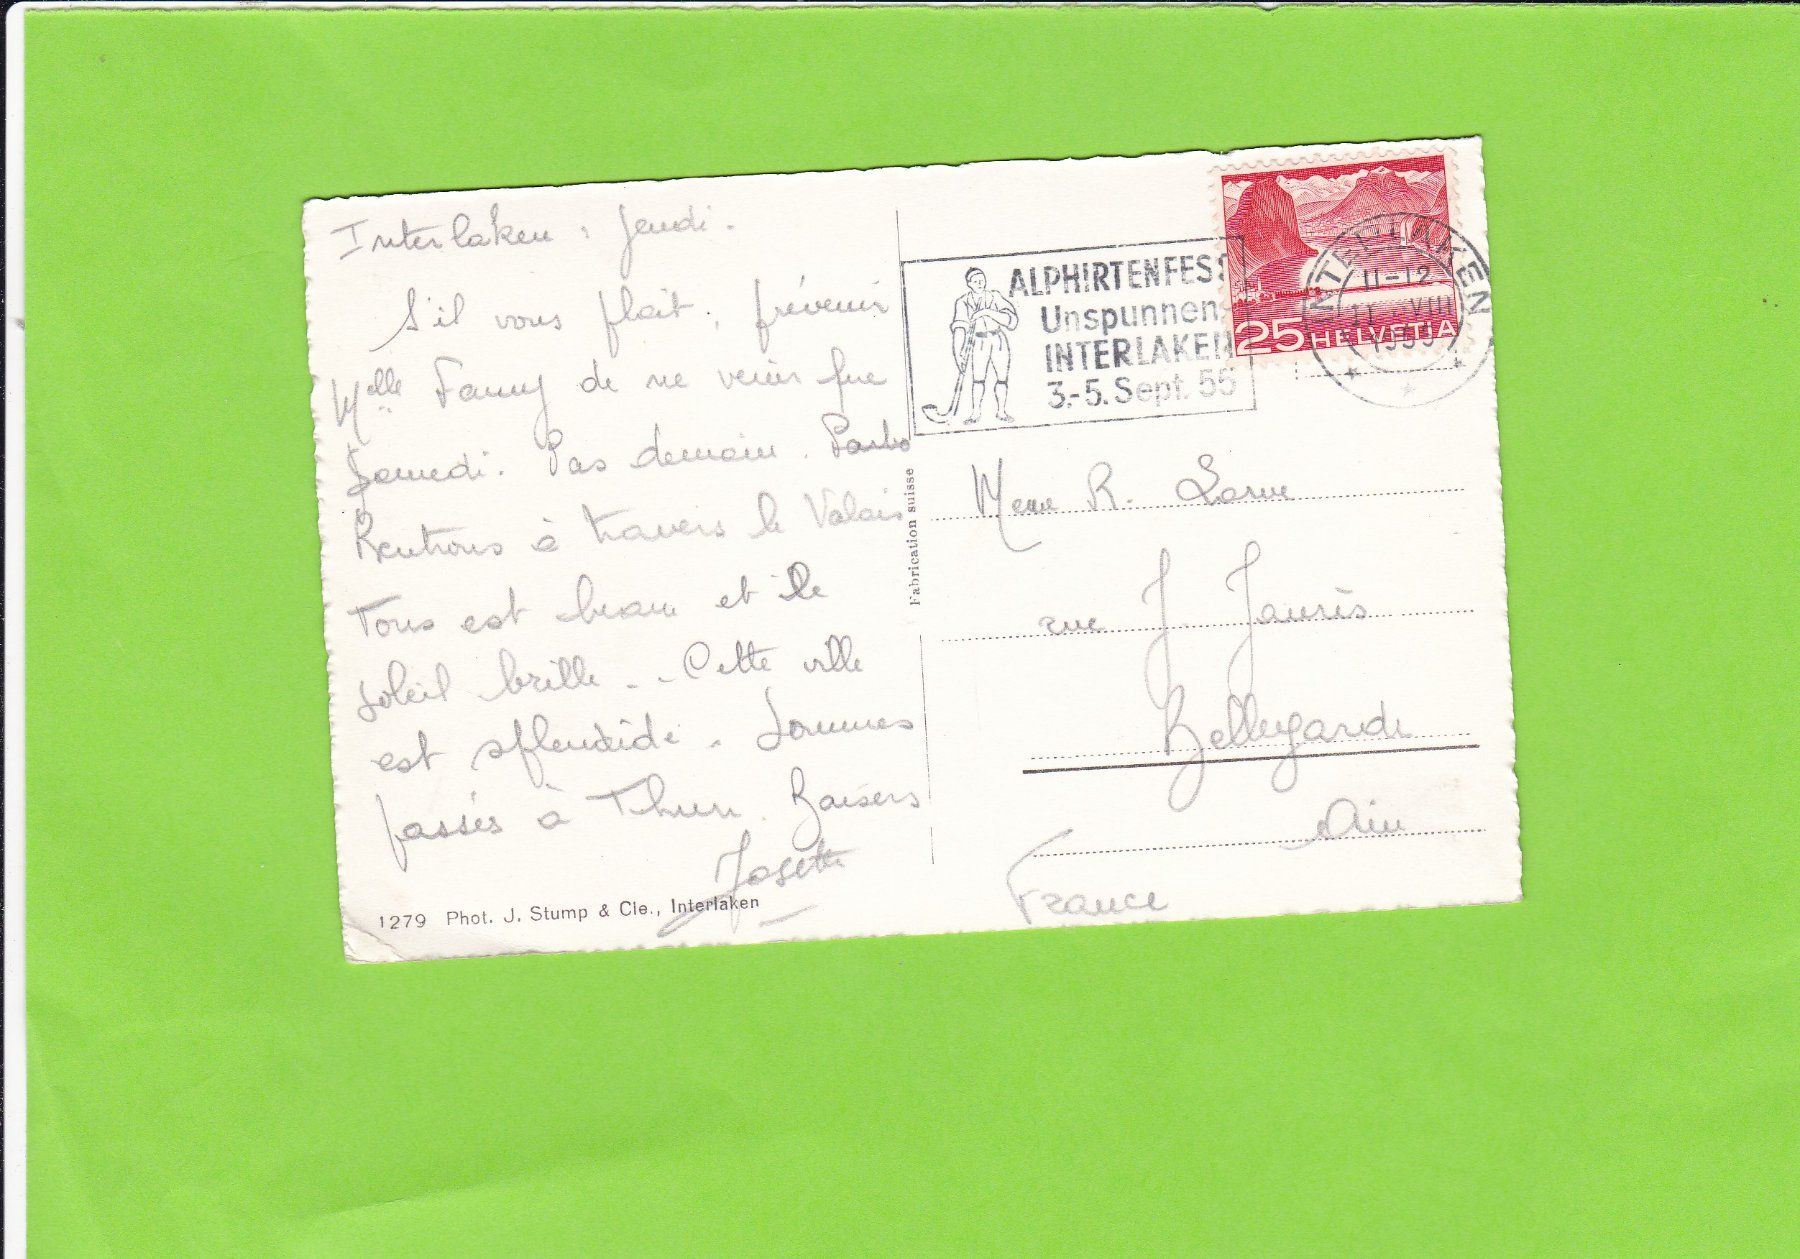 Interlaken : Jeudi.
S'il vous plait, prévenir
Melle Fanny de ne venir que
Samedi. Pas demain.
Rentrons à travers le Valais
Tous est beau et le
soleil brille. - Cette ville
est splendide. Sommes
passés à Thun. Baisers
Josette
1279 Phot. J. Stump & Cie., Interlaken
Fabrication suisse
ALPHIRTENFEST
Unspunnen
INTERLAKEN
3.-5. Sept. 55
25 HELVETIA
INTERLAKEN
11-12
VIII
1955
Mme R.
rue J. Jaurès
Bellegarde
Ain
France